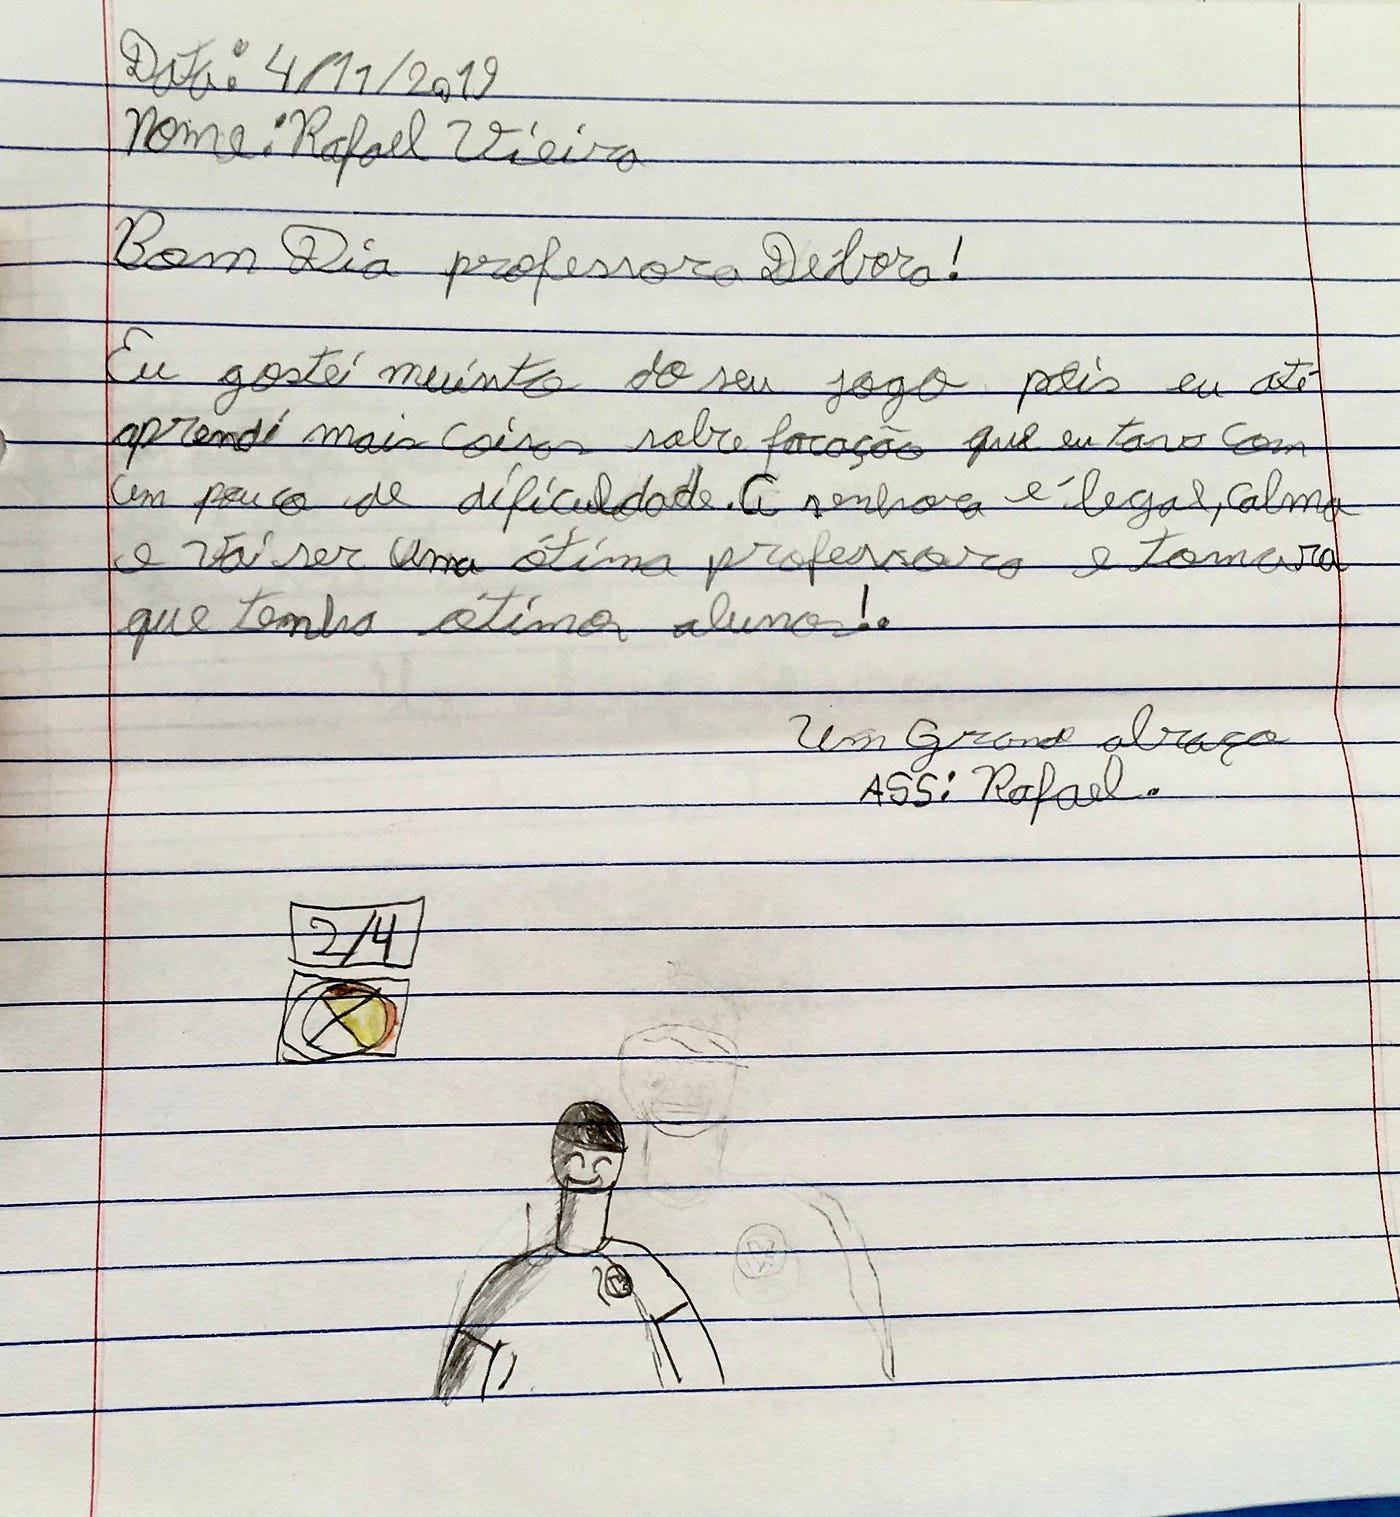 Data: 4/11/2019
Nome: Rafael Vieira
Bom Dia professora Débora!
Eu gostei muinto do seu jogo pois eu até
aprendi mais coisas sobre facação que eu tava com
um pouco de dificuldade. A senhora é legal, calma
e vai ser uma ótima professora e tomara
que tenha ótimos alunos!.
Um Grande abraço
ASS: Rafael.
2/4